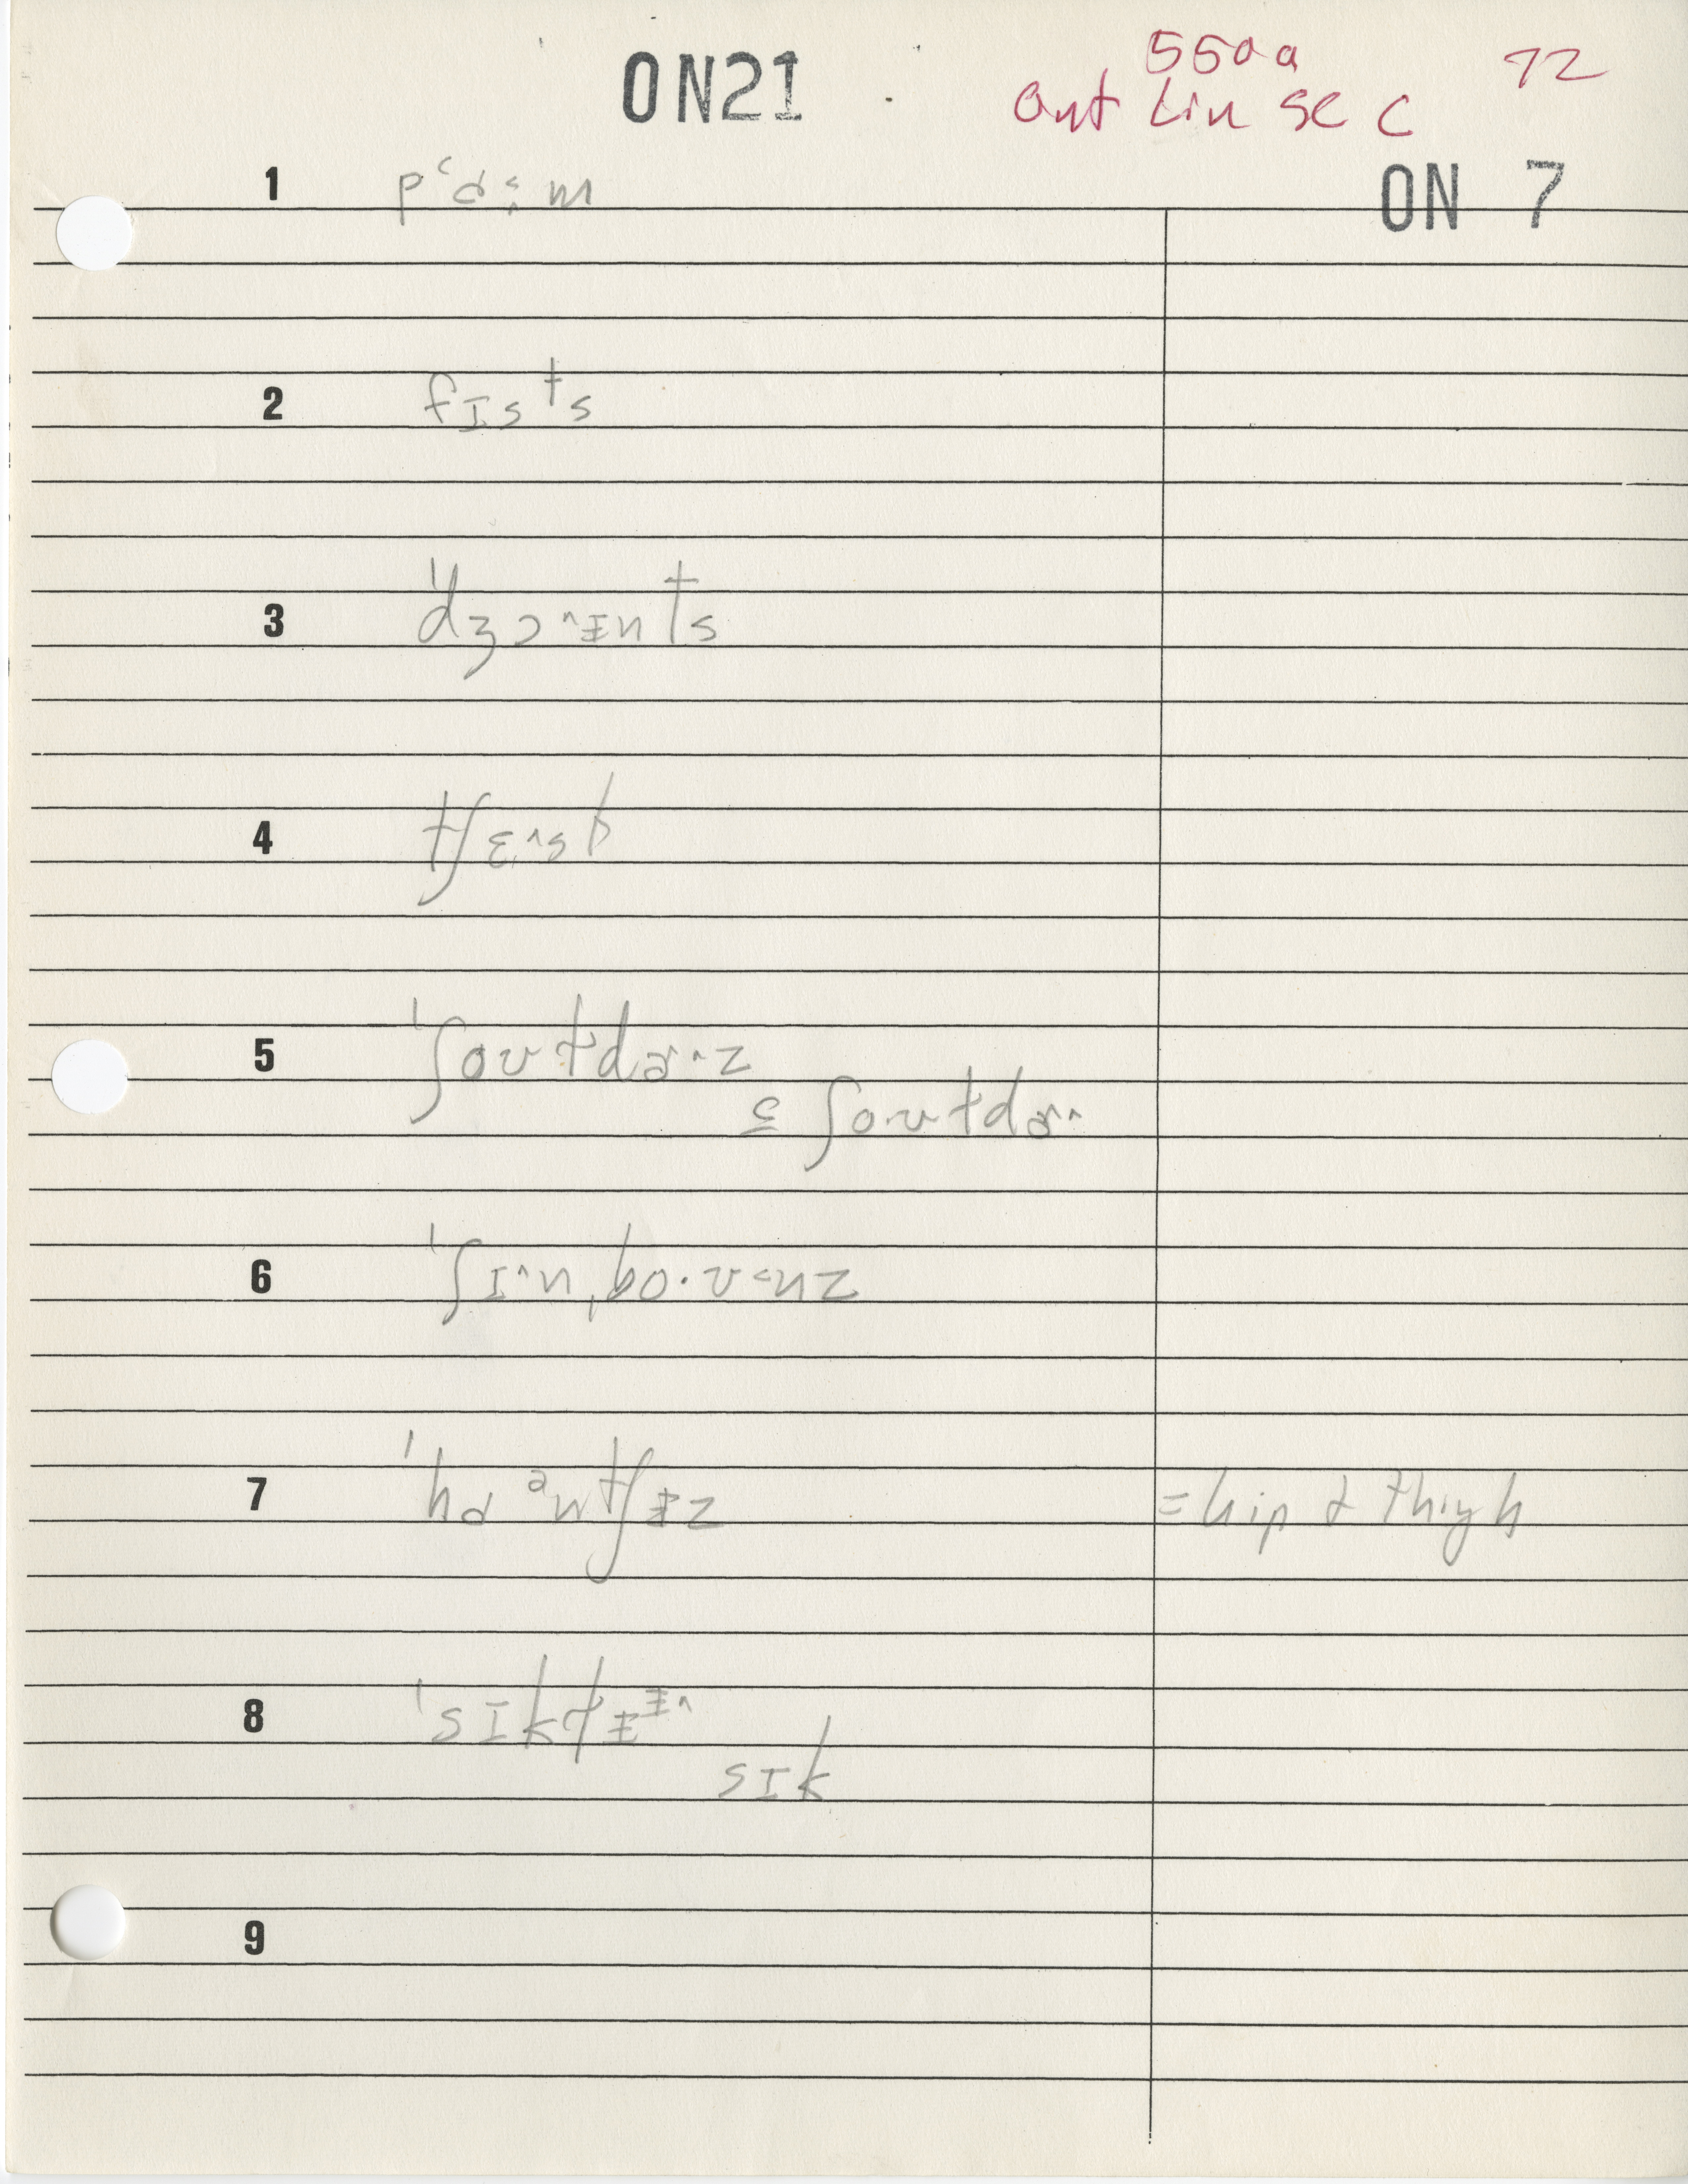 ON21
550a 72
Ont Lin Se C
ON 7
1 pʻɑ:m
2 fɪsᵗs
3 ˈdʒɔ^ɪnts
4 tʃɛ^st
5 ˈʃoʊtdɚ^z
ʃoʊtdɚ^
6 ˈʃɪ^nˌbo·ʊ<nz
7 ˈhɑᵊntʃɪz = hip & thigh
8 ˈsɪktɪ^
sɪk
9